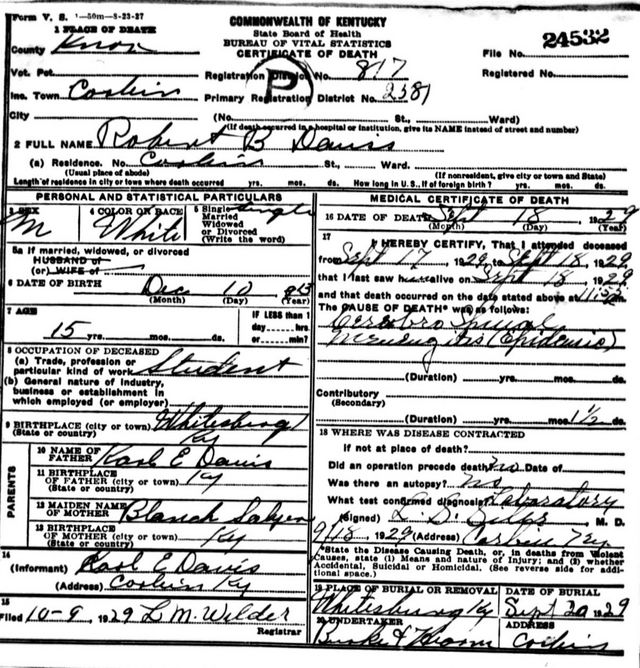 Form V. S. 1-50m-8-23-27
COMMONWEALTH OF KENTUCKY
State Board of Health
BUREAU OF VITAL STATISTICS
CERTIFICATE OF DEATH
1 PLACE OF DEATH
County Knox
File No. 24532
Vot. Pct.
Registration District No. 817
Registered No.
P
Inc. Town Corbin
Primary Registration District No. 2381
City (No. St., Ward)
(If death occurred in a hospital or institution, give its NAME instead of street and number)
2 FULL NAME Robert B Davis
(a) Residence. No. Corbin St., Ward.
(Usual place of abode) (If nonresident, give city or town and State)
Length of residence in city or town where death occurred yrs. mos. ds. How long in U. S., if of foreign birth? yrs. mos. ds.
PERSONAL AND STATISTICAL PARTICULARS
3 SEX M
4 COLOR OR RACE White
5 Single Married Widowed or Divorced (Write the word) Single
5a If married, widowed, or divorced
HUSBAND of
(or) WIFE of
6 DATE OF BIRTH Dec 10 913
(Month) (Day) (Year)
7 AGE
15 yrs. mos. ds.
IF LESS than 1 day hrs. or min.?
8 OCCUPATION OF DECEASED
(a) Trade, profession or particular kind of work Student
(b) General nature of industry, business or establishment in which employed (or employer)
9 BIRTHPLACE (city or town) Whitesburg
(State or country) Ky
PARENTS
10 NAME OF FATHER Karl E Davis
11 BIRTHPLACE OF FATHER (city or town) Ky
(State or country)
12 MAIDEN NAME OF MOTHER Blanch
13 BIRTHPLACE OF MOTHER (city or town) Ky
(State or country)
14
(Informant) Karl E Davis
(Address) Corbin Ky
15
Filed 10-9, 1929 L M Wilder
Registrar
MEDICAL CERTIFICATE OF DEATH
16 DATE OF DEATH Sept 18 1929
17
I HEREBY CERTIFY, That I attended deceased
from Sept 17, 1929, to Sept 18, 1929
that I last saw h alive on Sept 18, 1929
and that death occurred on the date stated above at m.
The CAUSE OF DEATH* was as follows:
Cerebro Spinal
Meningitis (Epidemic)
(Duration) yrs. mos. ds.
Contributory
(Secondary)
(Duration) yrs. mos. 1½ ds.
18 WHERE WAS DISEASE CONTRACTED
If not at place of death?
Did an operation precede death? no Date of
Was there an autopsy? no
What test confirmed diagnosis? Laboratory
(Signed) M. D.
1929 (Address) Corbin Ky
*State the Disease Causing Death, or, in deaths from Violent
Causes, state (1) Means and nature of Injury; and (2) whether
Accidental, Suicidal or Homicidal. (See reverse side for addi-
tional space.)
19 PLACE OF BURIAL OR REMOVAL Whitesburg Ky
DATE OF BURIAL Sept 20 1929
20 UNDERTAKER
ADDRESS Corbin